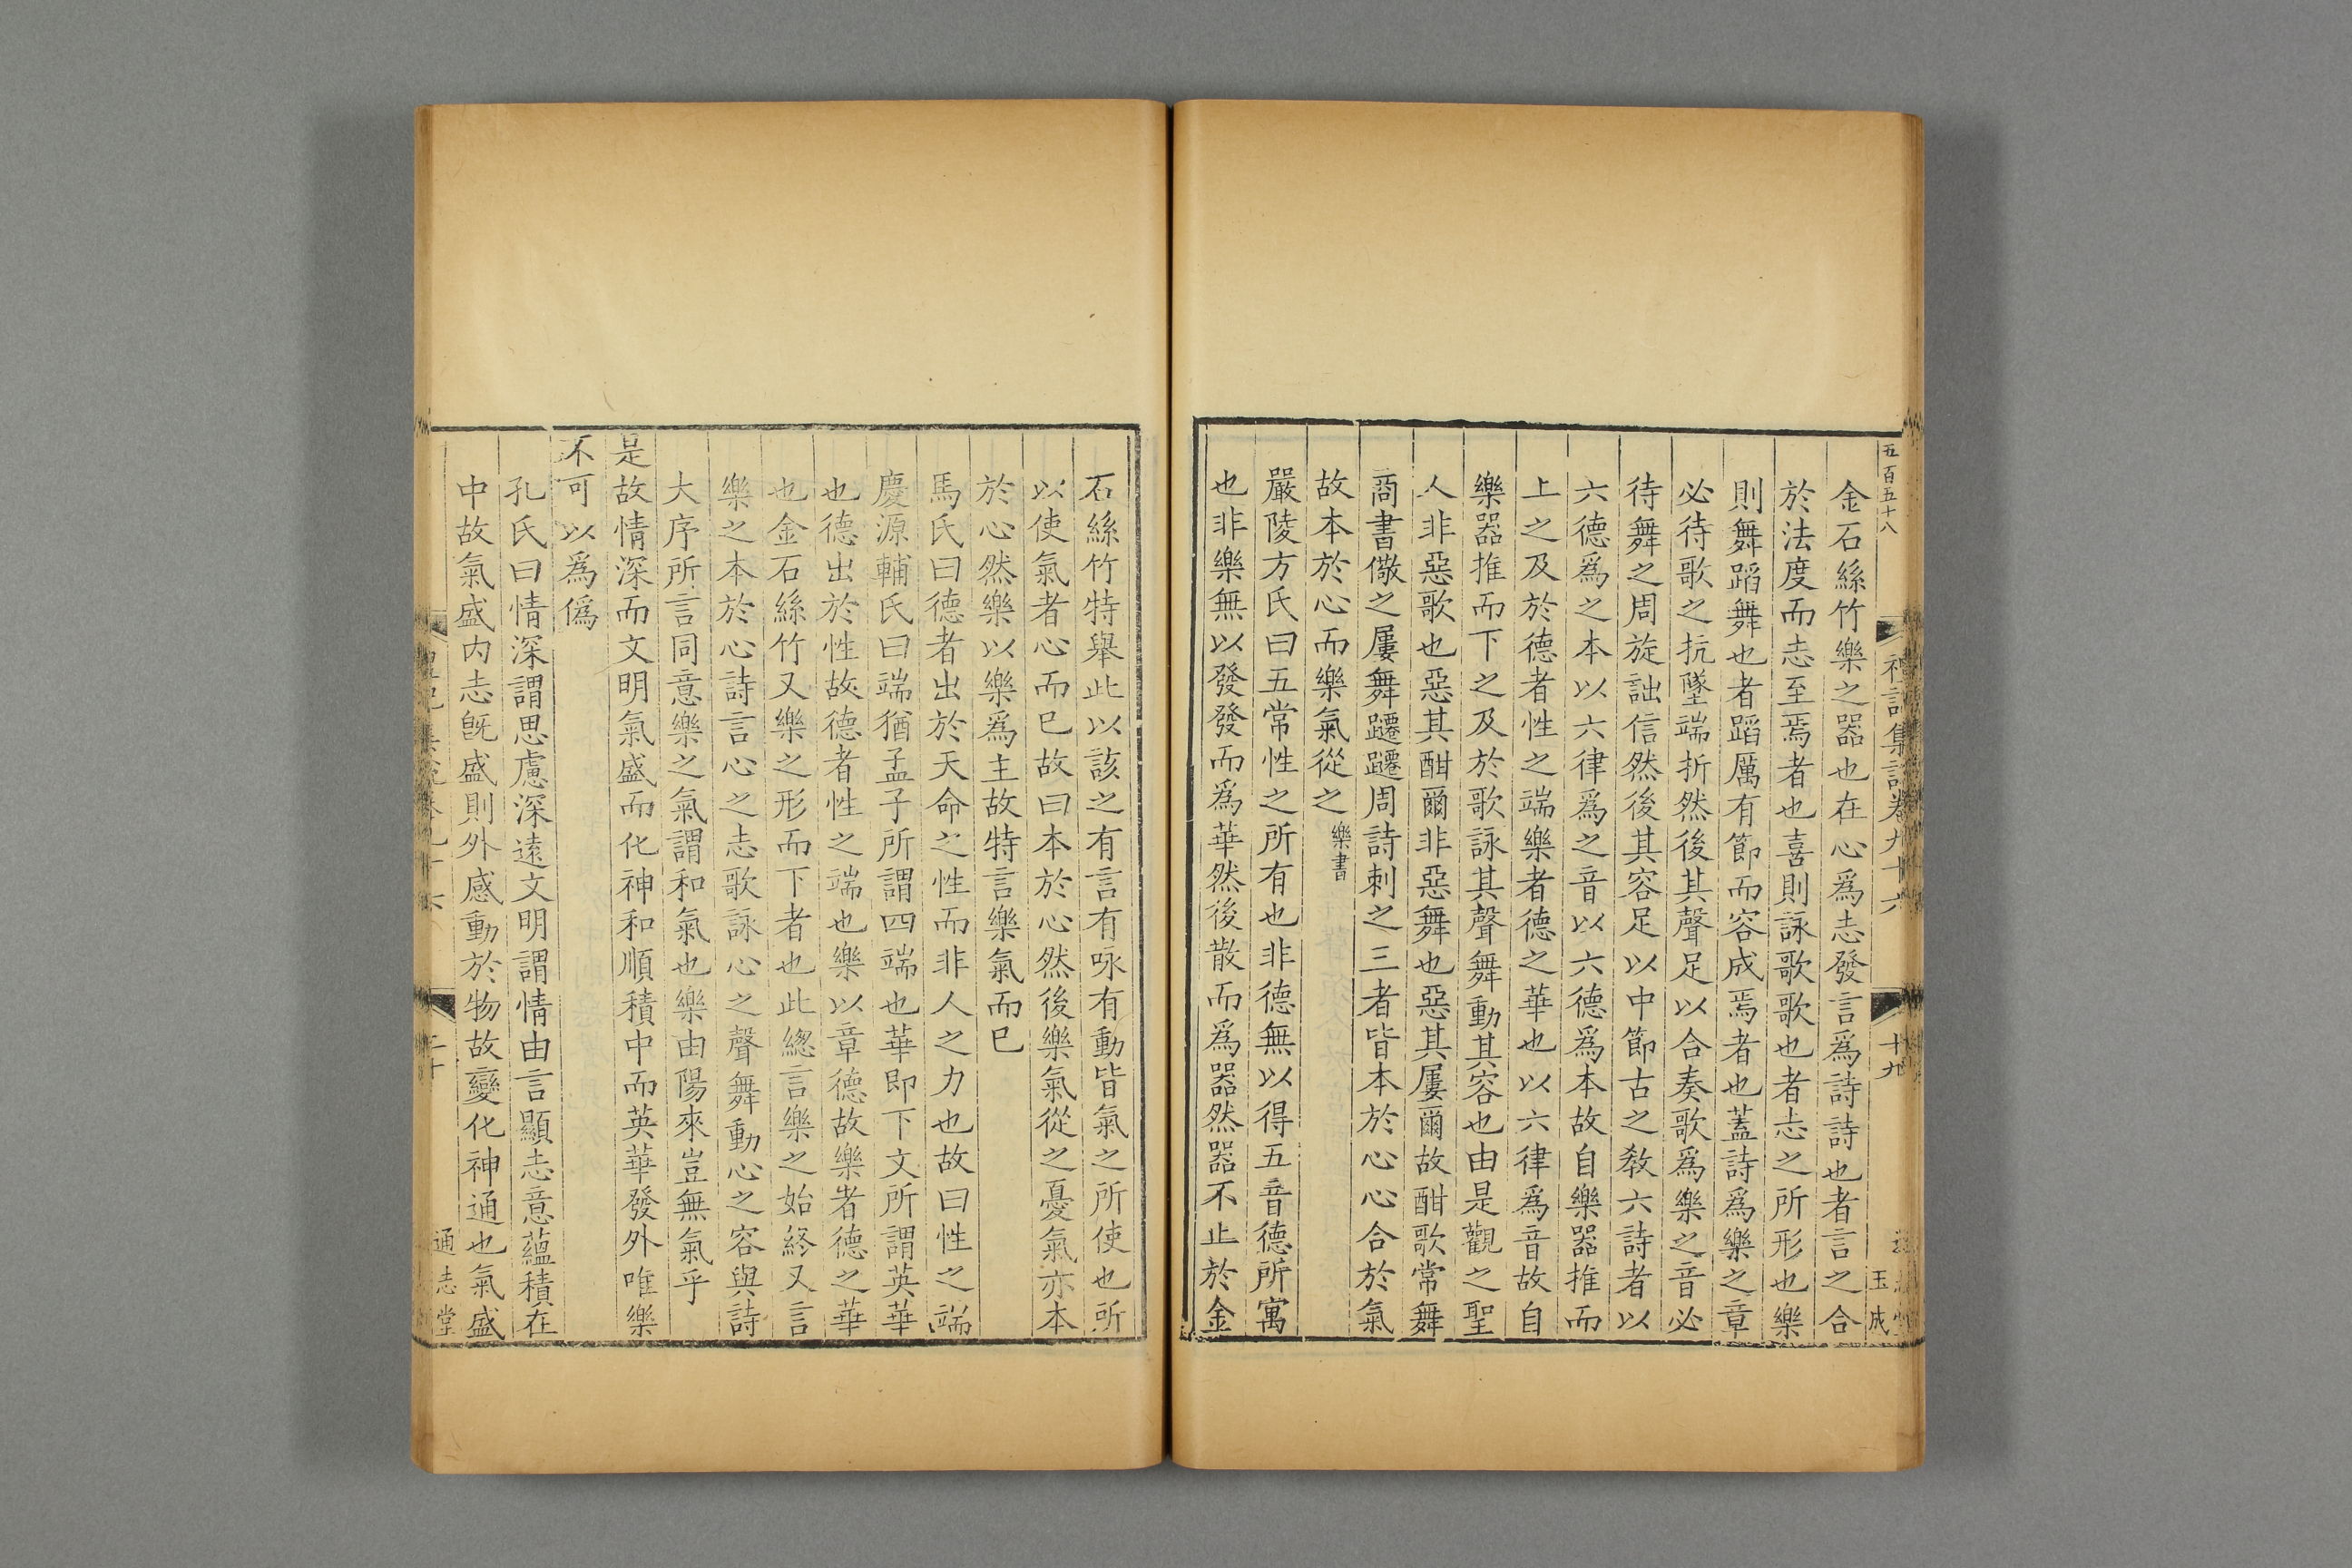 五百五十八
禮記集說卷九十六
十九
玉成
金石絲竹樂之器也在心爲志發言爲詩詩也者言之合
於法度而志至焉者也喜則詠歌歌也者志之所形也樂
則舞蹈舞也者蹈厲有節而容成焉者也蓋詩爲樂之章
必待歌之抗墜端折然後其聲足以合奏歌爲樂之音必
待舞之周旋詘信然後其容足以中節古之敎六詩者以
六德爲之本以六律爲之音以六德爲本故自樂器推而
上之及於德者性之端樂者德之華也以六律爲音故自
樂器推而下之及於歌詠其聲舞動其容也由是觀之聖
人非惡歌也惡其酣爾非惡舞也惡其屢爾故酣歌常舞
商書儆之屢舞躚躚周詩刺之三者皆本於心心合於氣
故本於心而樂氣從之樂書
嚴陵方氏曰五常性之所有也非德無以得五音德所寓
也非樂無以發發而爲華然後散而爲器然器不止於金
石絲竹特舉此以該之有言有咏有動皆氣之所使也所
以使氣者心而已故曰本於心然後樂氣從之憂氣亦本
於心然樂以樂爲主故特言樂氣而已
馬氏曰德者出於天命之性而非人之力也故曰性之端
慶源輔氏曰端猶孟子所謂四端也華即下文所謂英華
也德出於性故德者性之端也樂以章德故樂者德之華
也金石絲竹又樂之形而下者也此緫言樂之始終又言
樂之本於心詩言心之志歌詠心之聲舞動心之容與詩
大序所言同意樂之氣謂和氣也樂由陽來豈無氣乎
是故情深而文明氣盛而化神和順積中而英華發外唯樂
不可以爲僞
孔氏曰情深謂思慮深遠文明謂情由言顯志意蘊積在
中故氣盛內志旣盛則外感動於物故變化神通也氣盛
二十
通志堂